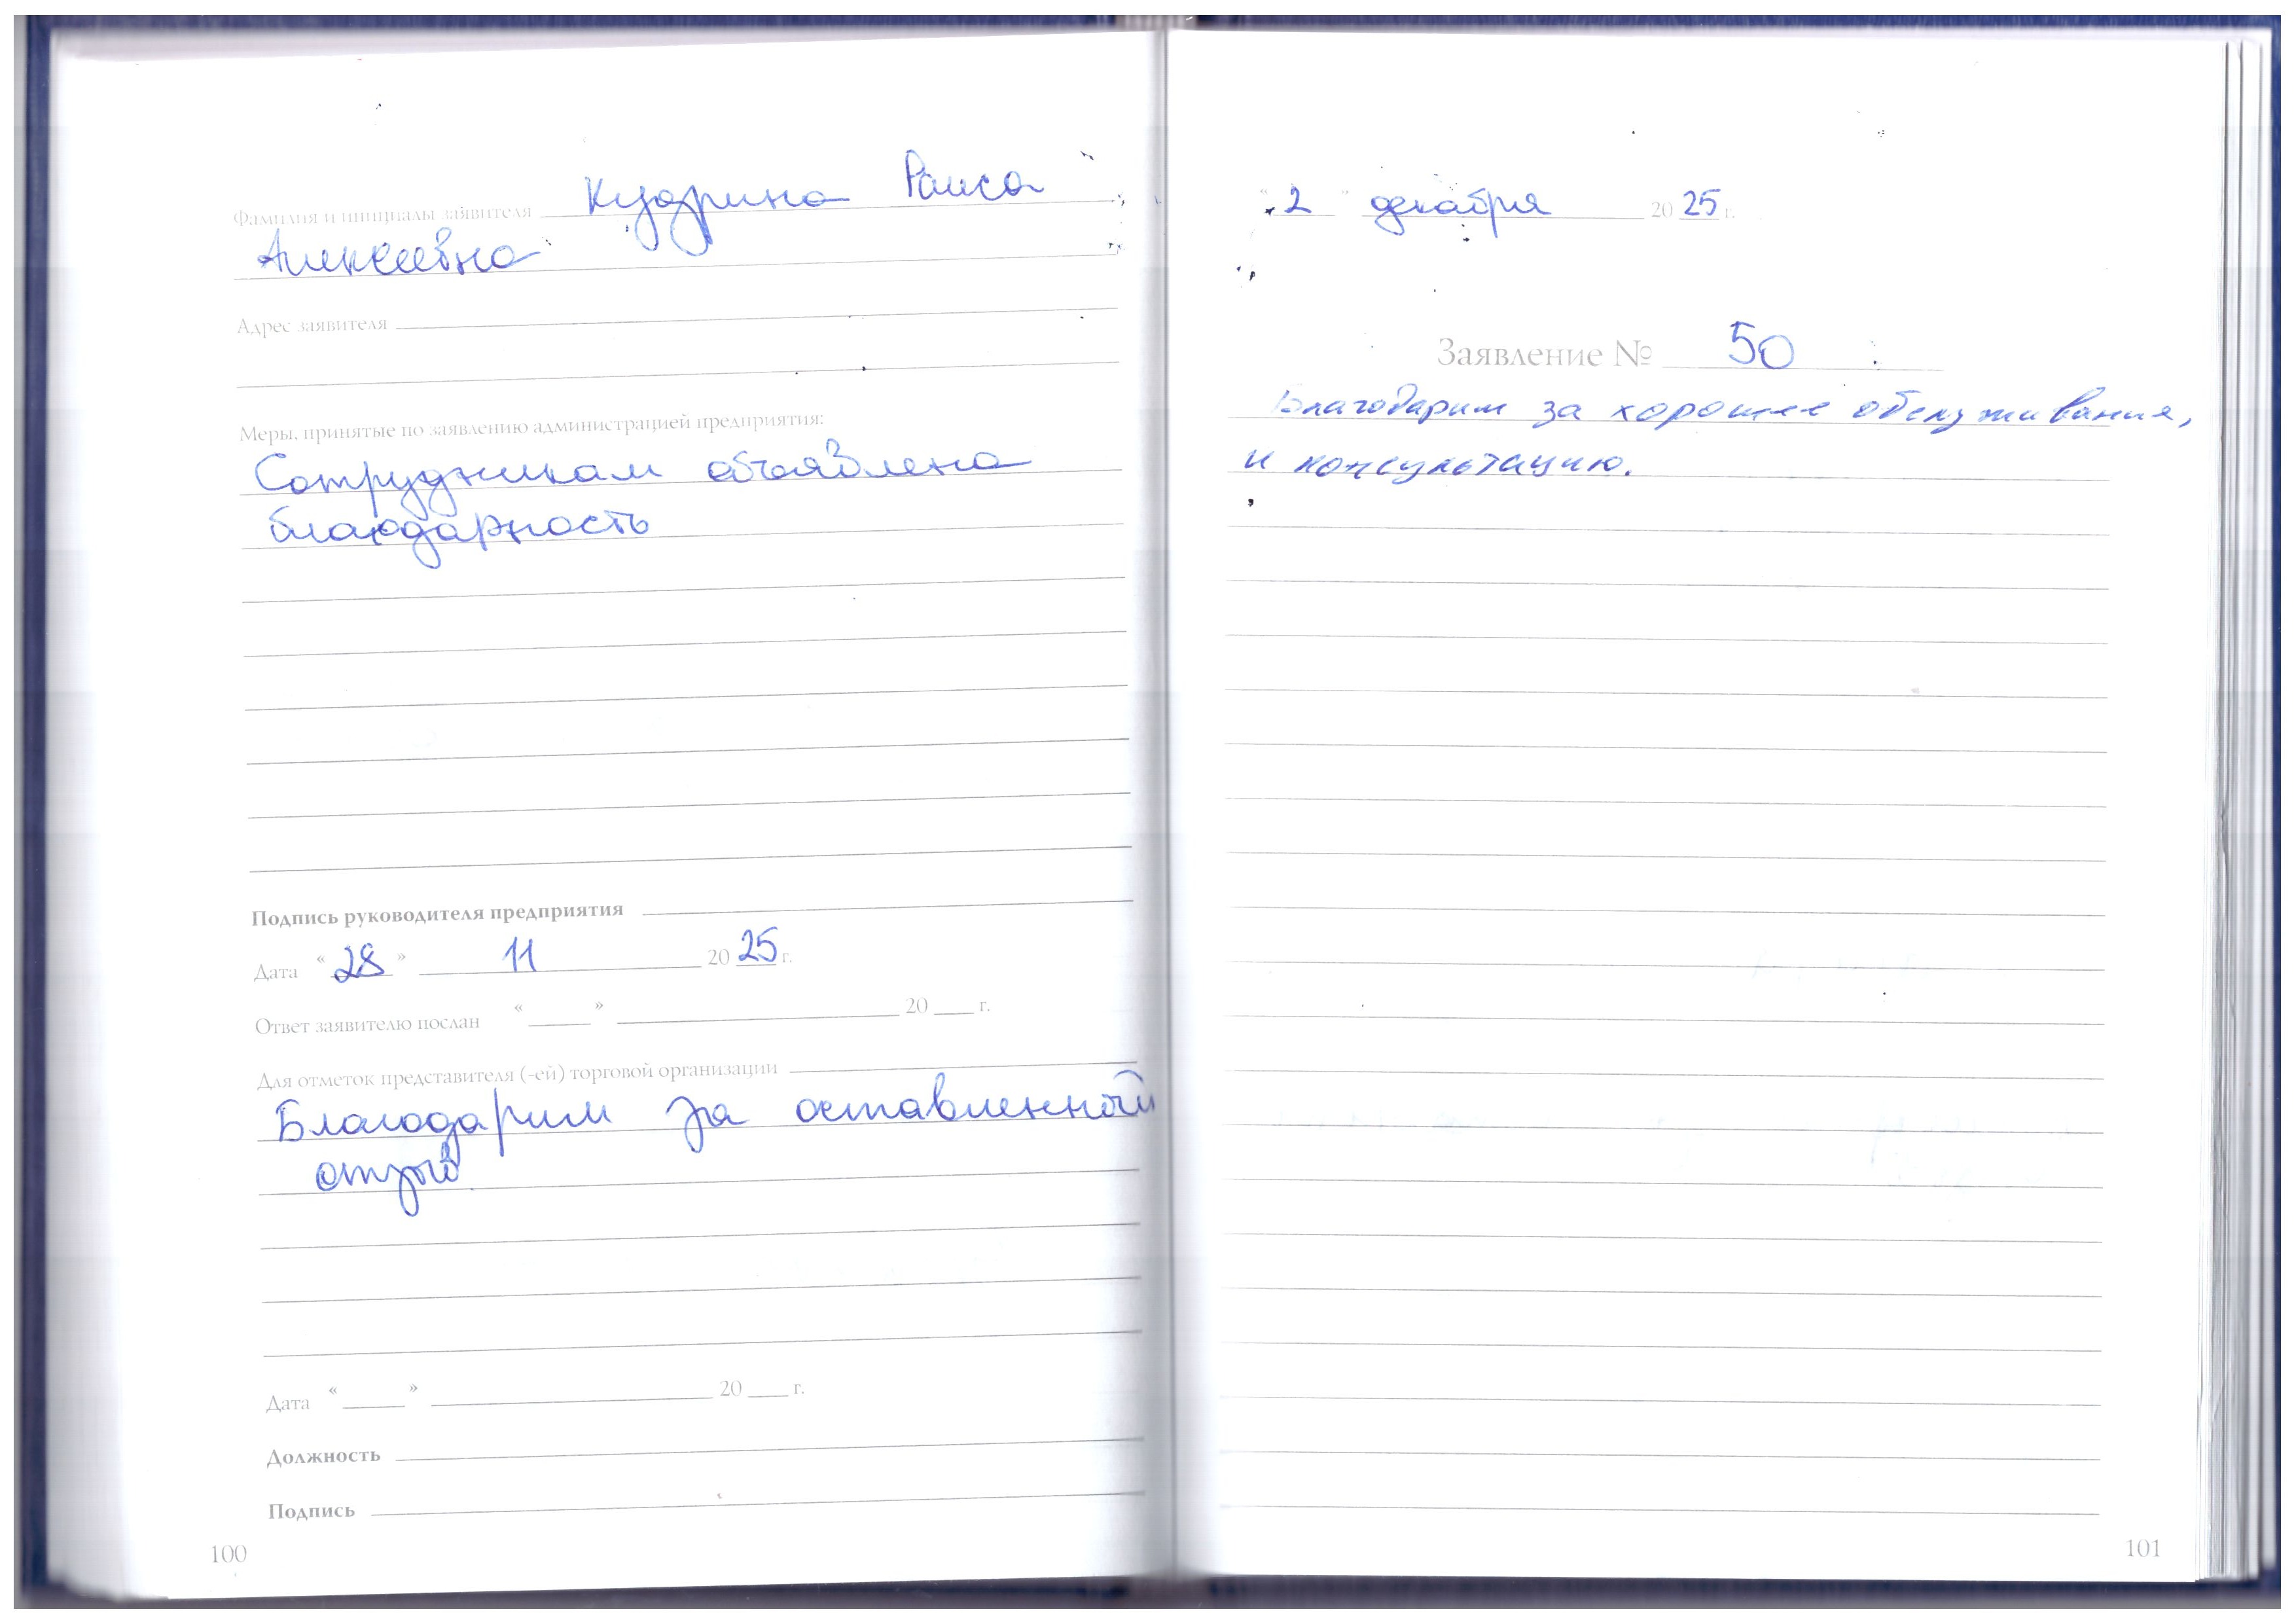 Фамилия и инициалы заявителя Кудрина Раиса
Алексеевна
Адрес заявителя
Меры, принятые по заявлению администрацией предприятия:
Сотрудникам объявлена
благодарность
Подпись руководителя предприятия
Дата «28» 11 2025 г.
Ответ заявителю послан «____» ____ 20 ___ г.
Для отметок представителя (-ей) торговой организации
Благодарим за оставленный
отзыв
Дата «____» ____ 20 ___ г.
Должность
Подпись
100
"2" декабря 2025 г.
Заявление № 50
Благодарим за хорошее обслуживания,
и консультацию.
101